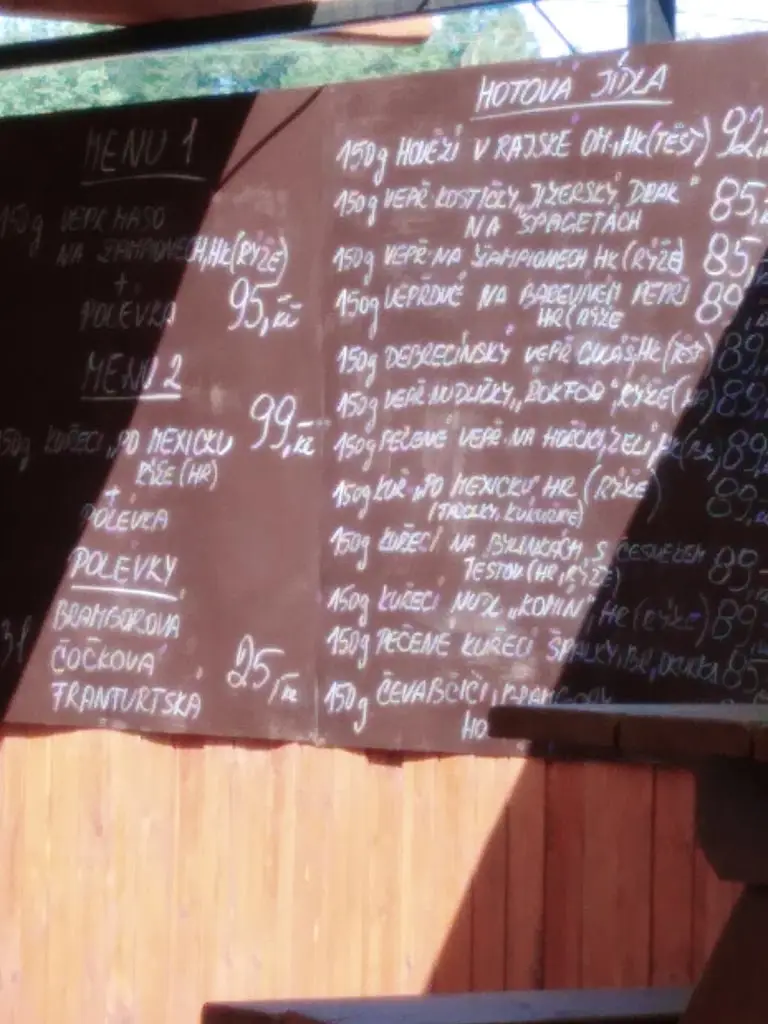 MENU 1
150g VEPŘ. MASO
NA ŽAMPIONECH, HK (RÝŽE)
+
POLÉVKA 95,- Kč
MENU 2
99,- Kč
150g KUŘECÍ „PO MEXICKU
RÝŽE (HR)
+
POLÉVKA
POLÉVKY
BRAMBOROVÁ
ČOČKOVÁ 25,- Kč
FRANTURTSKÁ
HOTOVÁ JÍDLA
150g HOVĚZÍ V RAJSKÉ OM., HK (TĚST) 92,-
150g VEPŘ. KOSTIČKY „JIZERSKÝ DRAK" 85,-
NA ŠPAGETÁCH
150g VEPŘ. NA ŽAMPIONECH HK (RÝŽE) 85,-
150g VEPŘOVÉ NA BAREVNÉM PEPŘI 89,
HR (RÝŽE
150g DEBRECÍNSKÝ VEPŘ. GULÁŠ, HK (TĚST) 89,
150g VEPŘ. NUDLIČKY „DOKTOR", RÝŽE (HR) 89,
150g PEČENÉ VEPŘ. NA HOŘČICI, ZELÍ, HK (BR) 89,
150g KUŘ. „PO MEXICKU" HR (RÝŽE) 89,
(FAZOLKY, KUKUŘICE)
150g KUŘECÍ NA BYLINKÁCH S ČESNEKEM
TĚSTOV (HR, RÝŽE) 89,
150g KUŘECÍ NUDL. „KOMÍN", HR (RÝŽE) 89,
150g PEČENÉ KUŘECÍ ŠPALKY, BR, OKURKA 85
150g ČEVABČIČI, BRAMBORY
HO